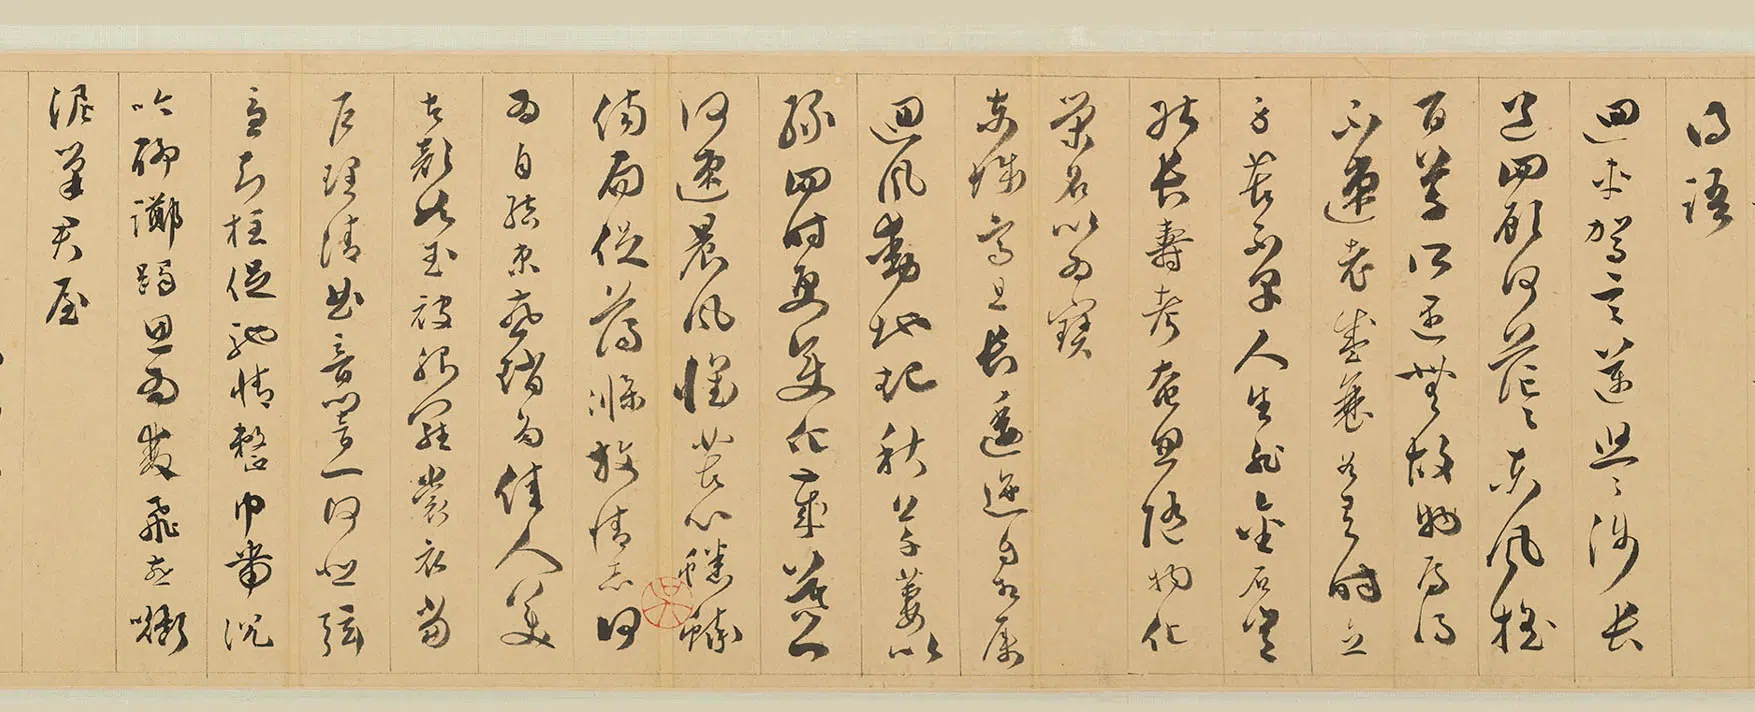 得語
迴車駕言邁悠〻涉長
道四顧何茫〻東風搖
百草所遇無故物焉得
不速老盛衰各有時立
身苦不早人生非金石豈
能長壽考奄忽隨物化
榮名以為寶
東城高且長逶迤自相屬
迴風動地起秋草萋以
綠四時更變化歲暮一
何速晨風懷苦心蟋蟀
傷局促蕩滌放情志何
為自結束燕趙多佳人美
者顏如玉被服羅裳衣當
戶理清曲音響一何悲弦
急知柱促馳情整巾帶沉
吟聊躑躅思為雙飛燕銜
泥巢君屋